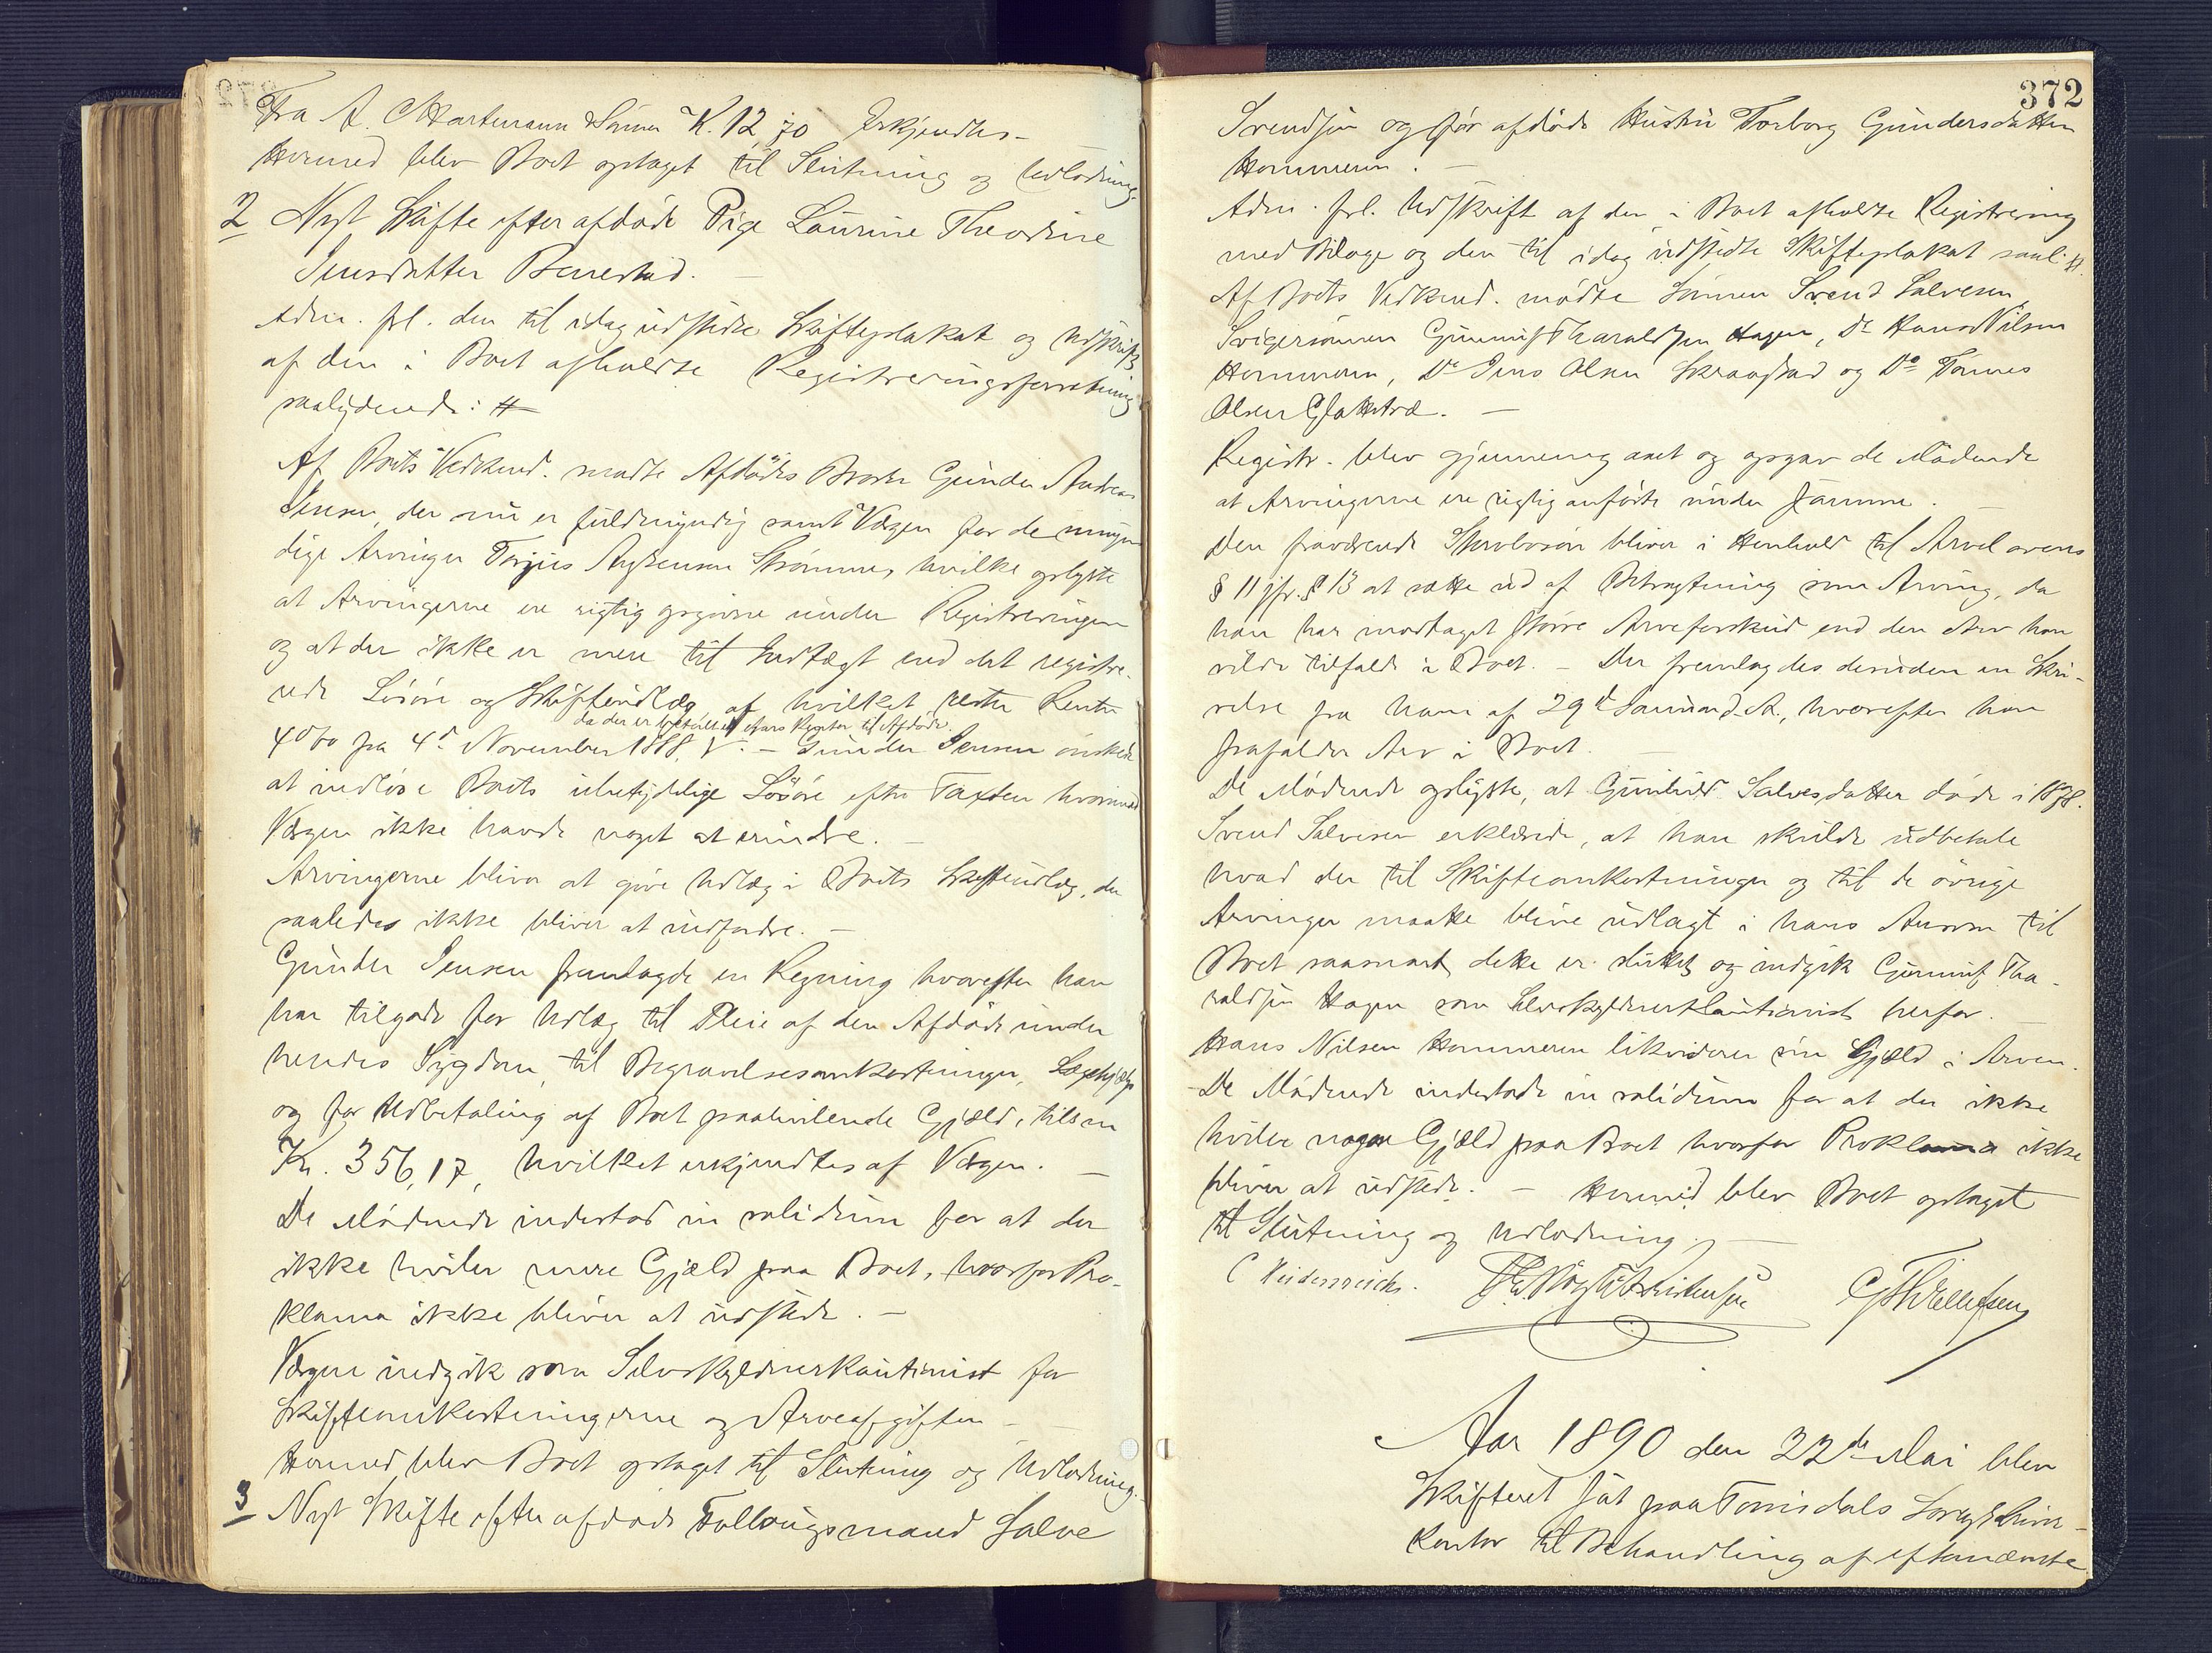 Fra A. C. Hartmann & Sønner K. 12,70 Erkjendtes –
Hermed blev Boet optaget til Slutning og Udlodning.
2 Nyt Skifte efter afdøde Pige Laurine Theodine
Jensdatter Benestad. –
Adm. frl. den til idag udstedte Skifteplakat og Udskrift
af den i Boet afholdte Registreringsforretning
saalydende: #
Af Boets Vedkmd. mødte Afdødes Broder Gunder Andreas
Jensen, der nu er fuldmyndig samt Værgen for de umyn
dige Arvinger Terjus Strømme, hvilke oplyste
at Arvingerne ere rigtig opgivne under Registreringen
og at der ikke er mere til Indtægt end det registre-
rede Løsøre og Skifteudlæg, af hvilket rester Renter
da der er betalt et Aars Renter til Afdøde.
4% fra 4de November 1888, V. – Gunder Jensen ønskede
at indløse Boets ubetydelige Løsøre efter Taxten hvorimod
Værgen ikke havde noget at erindre. –
Arvingerne bliver at give Udlæg i Boets Skifteudlæg, der
saaledes ikke bliver at indfordre. –
Gunder Jensen fremlagde en Regning hvorefter han
har tilgode for Udlæg til Pleie af den Afdøde under
hendes Sygdom, til Begravelsesomkostninger, Lægehjælp
og for Udbetaling af Boet paahvilende Gjæld, tilsm
Kr. 356,17, hvilket erkjendtes af Værgen. –
De Mødende indestod in solidum for at der
ikke hviler mere Gjæld paa Boet, hvorfor Pro-
klama ikke bliver at udstede. –
Værgen indgik som Selvskyldnerkautionist for
Skifteomkostningerne og Arveafgiften –
Hermed blev Boet optaget til Slutning og Udlodning.
3 Nyt Skifte efter afdøde Follaugsmand Salve
372
Svendsen og før afdøde Hustru Torborg Gundersdatter
Hommeren. –
Adm. frl. Udskrift af den i Boet afholdte Registrering
med Bilage og den til idag udstedte Skifteplakat saal. #.
Af Boets Vedkmd. mødte Sønnen Svend Salvesen,
Svigersønnen Gunnuf Tharaldsen Hagen, Do Hans Nilsen
Hommeren, Do Jens Olsen Skraastad og Do Tønnes
Olsen Glattetræ. –
Registr. blev gjennemgaaet og opgav de Mødende
at Arvingerne ere rigtig anførte under samme. –
Den fraværende bliver i Henhold til Arvelovens
§ 11 jfr. § 13 at sætte ud af Betragtning som Arving, da
han har modtaget større Arveforskud end den Arv han
vilde tilfalde i Boet. – Der fremlagdes desuden en Skri-
velse fra ham af 29de Januar d. A., hvorefter han
frafalder Arv i Boet. –
De Mødende oplyste, at Gunhild Salvesdatter døde i 1878.
Svend Salvesen erklærede, at han skulde udbetale
hvad der til Skifteomkostninger og til de øvrige
Arvinger maatte blive udlagt i hans Ansvar til
Boet saasnart dette er sluttet, og indgik Gunnuf Tha-
raldsen Hagen som Selvskyldnerkautionist herfor. –
Hans Nilsen Hommeren likviderer sin Gjæld i Arven.
De Mødende indestode in solidum for at der ikke
hviler nogen Gjæld paa Boet hvorfor Proklama ikke
bliver at udstede. – Hermed blev Boet optaget
til Slutning og Udlodning. –
C Heidenreich.
Aar 1890 den 22de Mai blev
Skifteret sat paa Torrisdals Sorenskriver-
kontor til Behandling af efternævnte